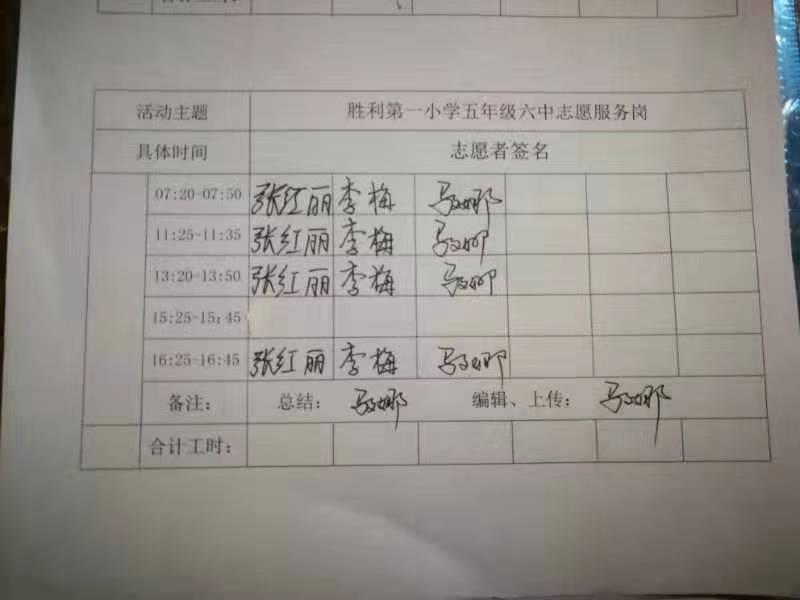 活动主题 胜利第一小学五年级六中志愿服务岗
具体时间 志愿者签名
07:20-07:50 张红丽 李梅 马娜
11:25-11:35 张红丽 李梅 马娜
13:20-13:50 张红丽 李梅 马娜
15:25-15:45
16:25-16:45 张红丽 李梅 马娜
备注: 总结: 马娜 编辑、上传: 马娜
合计工时: